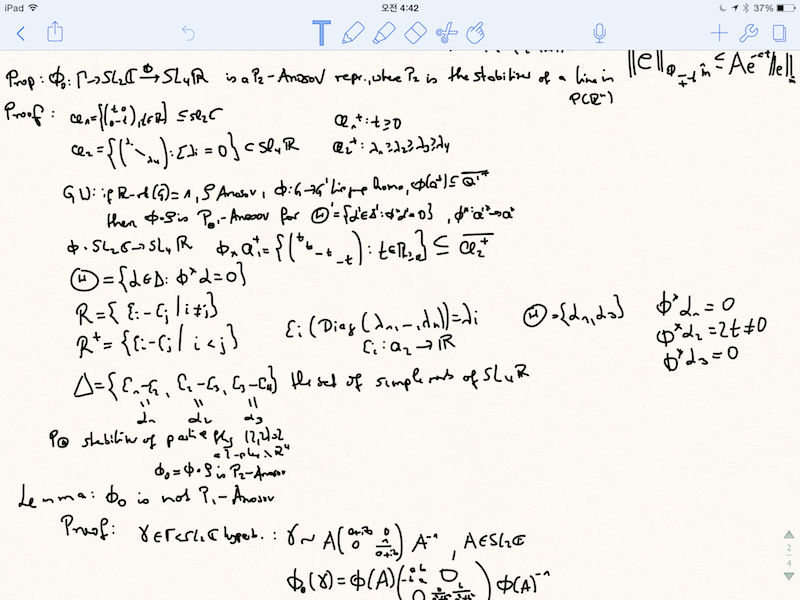 iPad 오전 4:42 37%
‖e‖_{Φ_{-t} m̂} ≤ A e^{-ct} ‖e‖
Prop: Φ₀: Γ→SL₂ℂ →^Φ SL₄ℝ is a P₂-Anosov repr., where P₂ is the stabilizer of a line in
P(ℝⁿ)
Proof: 𝔞₁={(t 0 0 -t), t∈ℝ} ⊆ sl₂ℂ 𝔞₁⁺: t≥0
𝔞₂={(λ₁ ⋱ λ₄): Σλᵢ=0} ⊂ sl₄ℝ 𝔞₂⁺: λ₁≥λ₂≥λ₃≥λ₄
GW: if ℝ-rk(G)=1, ρ Anosov, Φ:G→G' Lie group homo, Φ(𝔞⁺)⊆
then Φ∘ρ is P_Θ'-Anosov for Θ'={α'∈Δ': Φ*α'=0}, Φ*:
Φ: SL₂ℂ→SL₄ℝ Φ_* 𝔞₁⁺={(t t -t -t): t∈ℝ≥0} ⊆ 𝔞₂⁺
Θ={α∈Δ: Φ*α=0}
R={εᵢ-εⱼ | i≠j} εᵢ(Diag(λ₁,…,λₙ))=λᵢ Θ={α₁,α₃} Φ*α₁=0
R⁺={εᵢ-εⱼ | i<j} εᵢ: 𝔞₂→ℝ Φ*α₂=2t≠0
Φ*α₃=0
Δ={ε₁-ε₂, ε₂-ε₃, ε₃-ε₄} the set of simple roots of SL₄ℝ
α₁ α₂ α₃
P_Θ stabilizer of partial flag
Φ₀=Φ∘ρ is P₂-Anosov
Lemma: Φ₀ is not P₁-Anosov
Proof: γ∈Γ<SL₂ℂ hyperb.: γ∼A(a+ib 0 0 1/(a+ib))A⁻¹, A∈SL₂ℂ
Φ₀(γ)=Φ(A)(a b -b a 0 0)Φ(A)⁻¹
2
4